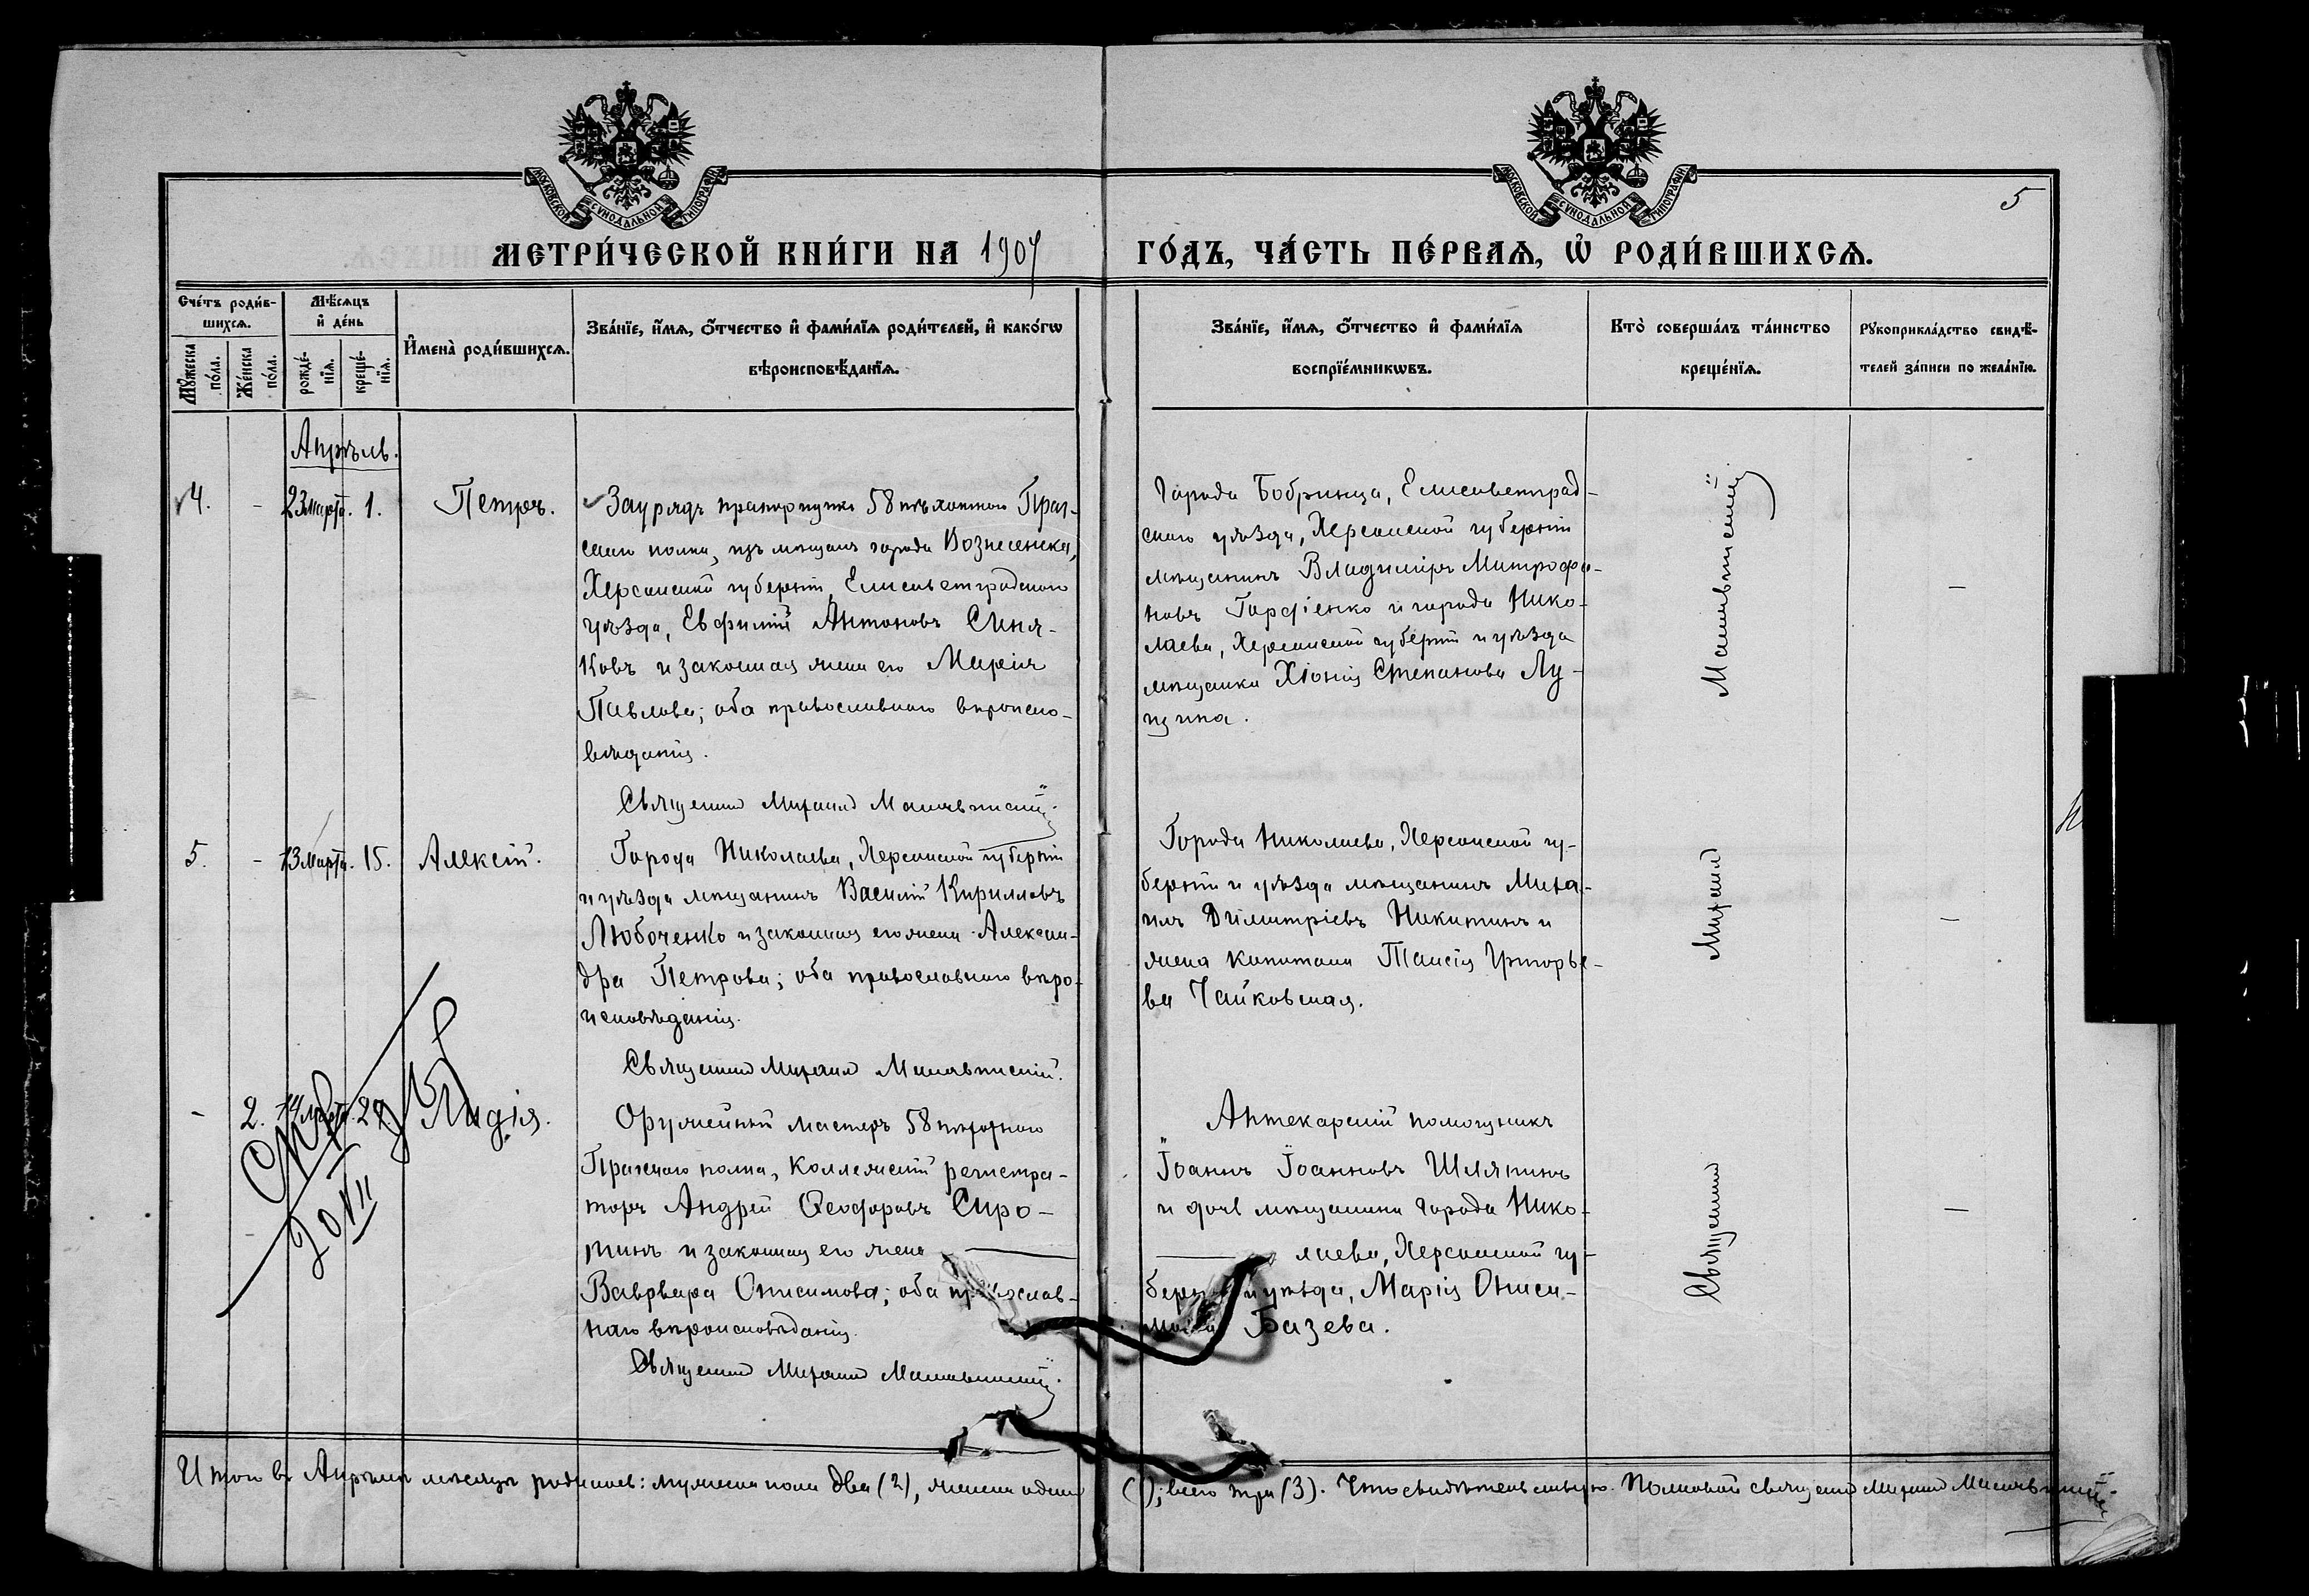 МОСКОВСКОЙ СУНОДАЛЬНОЙ ТИПОГРАФІИ
МОСКОВСКОЙ СУНОДАЛЬНОЙ ТИПОГРАФІИ
5
МЕТРИ́ЧЕСКОЙ КНИ́ГИ НА 1907
ГО́ДЪ, ЧА́СТЬ ПЕ́РВАѦ, Ѡ҆ РОДИ́ВШИХСѦ.
Сче́тъ роди́в-
шихсѧ.
Мѣ́сѧцъ
и҆ де́нь
Мꙋ́жеска
по́ла.
Же́нска
по́ла.
рожде́-
нїѧ.
креще́-
нїѧ.
И҆мена̀ роди́вшихсѧ.
Зва́нїе, и҆́мѧ, ѻ҆́тчество и҆ фами́лїѧ роди́телей, и҆ како́гѡ
вѣроисповѣ́данїѧ.
Зва́нїе, и҆́мѧ, ѻ҆́тчество и҆ фами́лїѧ
воспрїе́мникѡвъ.
Кто̀ соверша́лъ та́инство
креще́нїѧ.
Рꙋкоприкла́дство свидѣ́-
телей за́писи по жела́нїю.
Апрѣль.
4. - 23 марта. 1. Петръ.
Заурядъ прапорщикъ 58 пѣхотнаго Праг-
скаго полка, изъ мѣщанъ города Вознесенска,
Херсонской губерніи, Елисаветградскаго
уѣзда, Евфимій Антоновъ Синя-
ковъ и законная жена его Марія
Павлова; оба православнаго вѣроиспо-
вѣданія.
Священникъ Михаилъ
Города Бобринца, Елисаветград-
скаго уѣзда, Херсонской губерніи
мѣщанинъ Владиміръ Митрофа-
новъ Гордіенко и города Нико-
лаева, Херсонской губерніи и уѣзда
мѣщанка Хіонія Степанова Лу-
цина.
—
5. - 13 марта. 15. Алексій.
Города Николаева, Херсонской губерніи
и уѣзда мѣщанинъ Василій Кирилловъ
Любоченко и законная его жена Алексан-
дра Петрова; оба православнаго вѣро-
исповѣданія.
Священникъ Михаилъ
Города Николаева, Херсонской гу-
берніи и уѣзда мѣщанинъ Миха-
илъ Димитріевъ Никитинъ и
жена капитана Таисія Григорье-
ва Чайковская.
Михаилъ
—
- 2. 14 марта. 29. Лидія.
Оружейный мастеръ 58 пѣхотнаго
Пражскаго полка, Коллежскій регистра-
торъ Андрей Ѳеодоровъ Сиро-
тинъ и законная его жена
Варвара Онисимова; оба православ-
наго вѣроисповѣданія.
Священникъ Михаилъ
Аптекарскій помощникъ
Іоаннъ Іоанновъ Шляпинъ
и дочь мѣщанина города Нико-
лаева, Херсонской гу-
берніи и уѣзда, Марія Ониси-
мова Базева.
Священникъ
—
Итого въ Апрѣлѣ мѣсяцѣ родилось: мужеска пола два (2), женска одна
(1); всего три (3). Что свидѣтельствую. Полковой священникъ Михаилъ